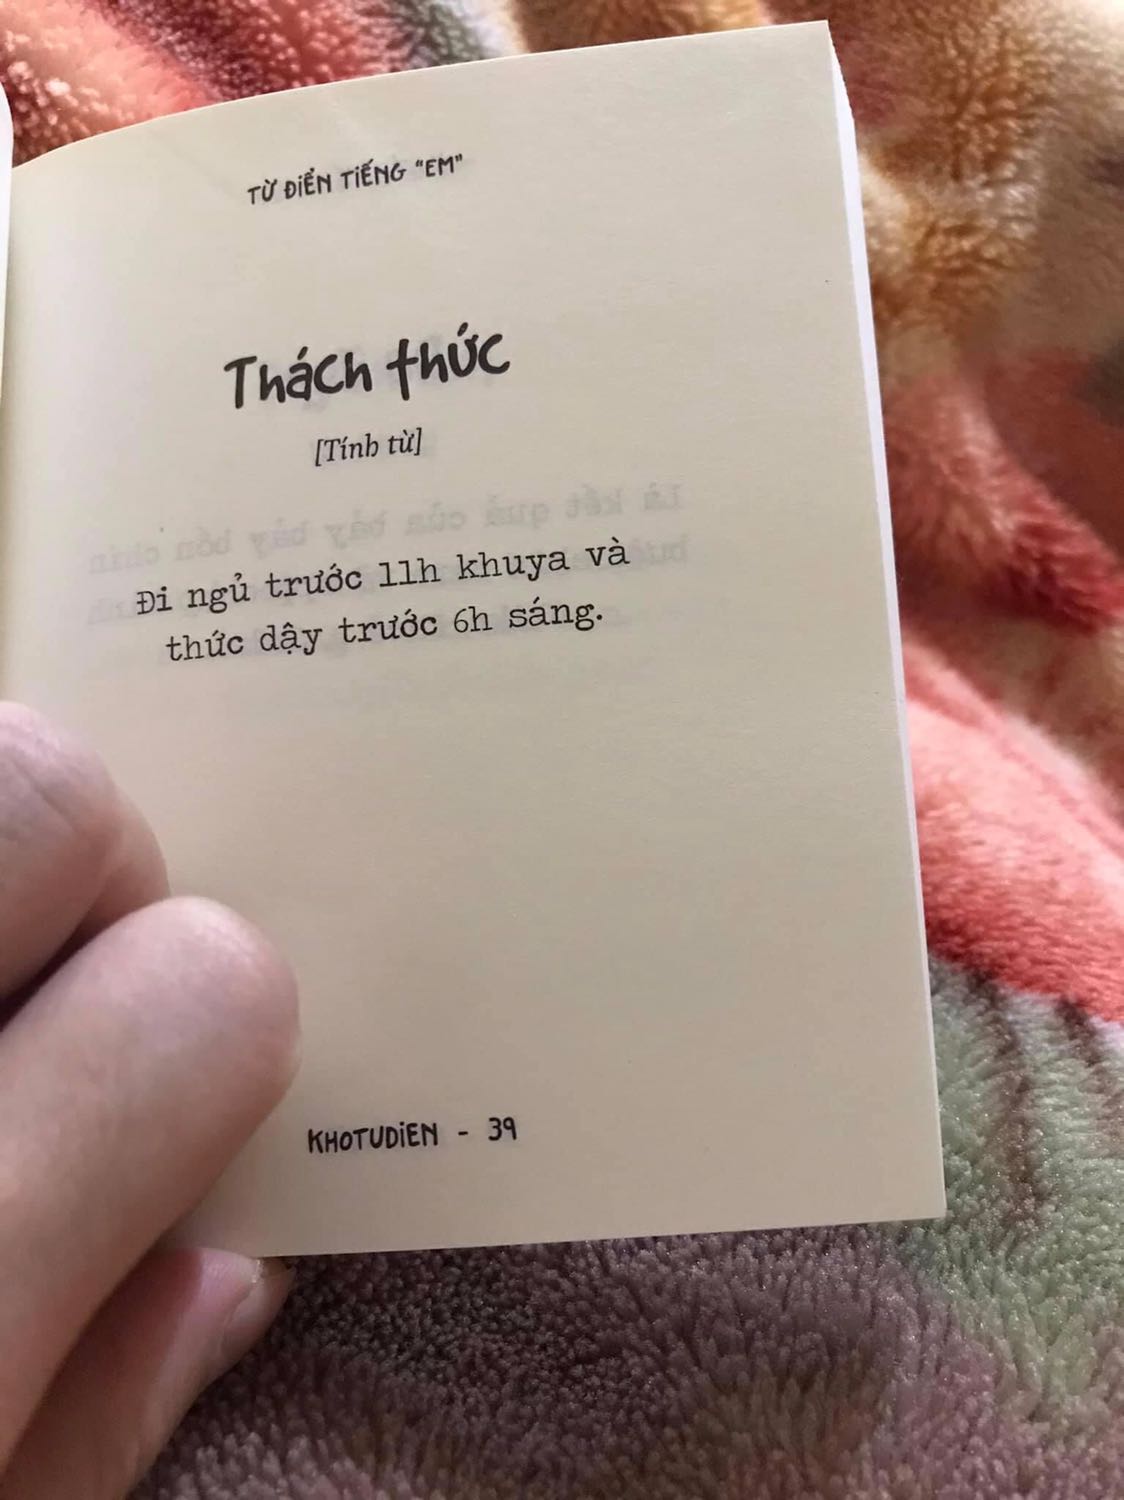 TỪ ĐiỂN TiẾNG "EM"
Thách thức
[Tính từ]
Đi ngủ trước 11h khuya và
thức dậy trước 6h sáng.
KHOTUDiEN - 39